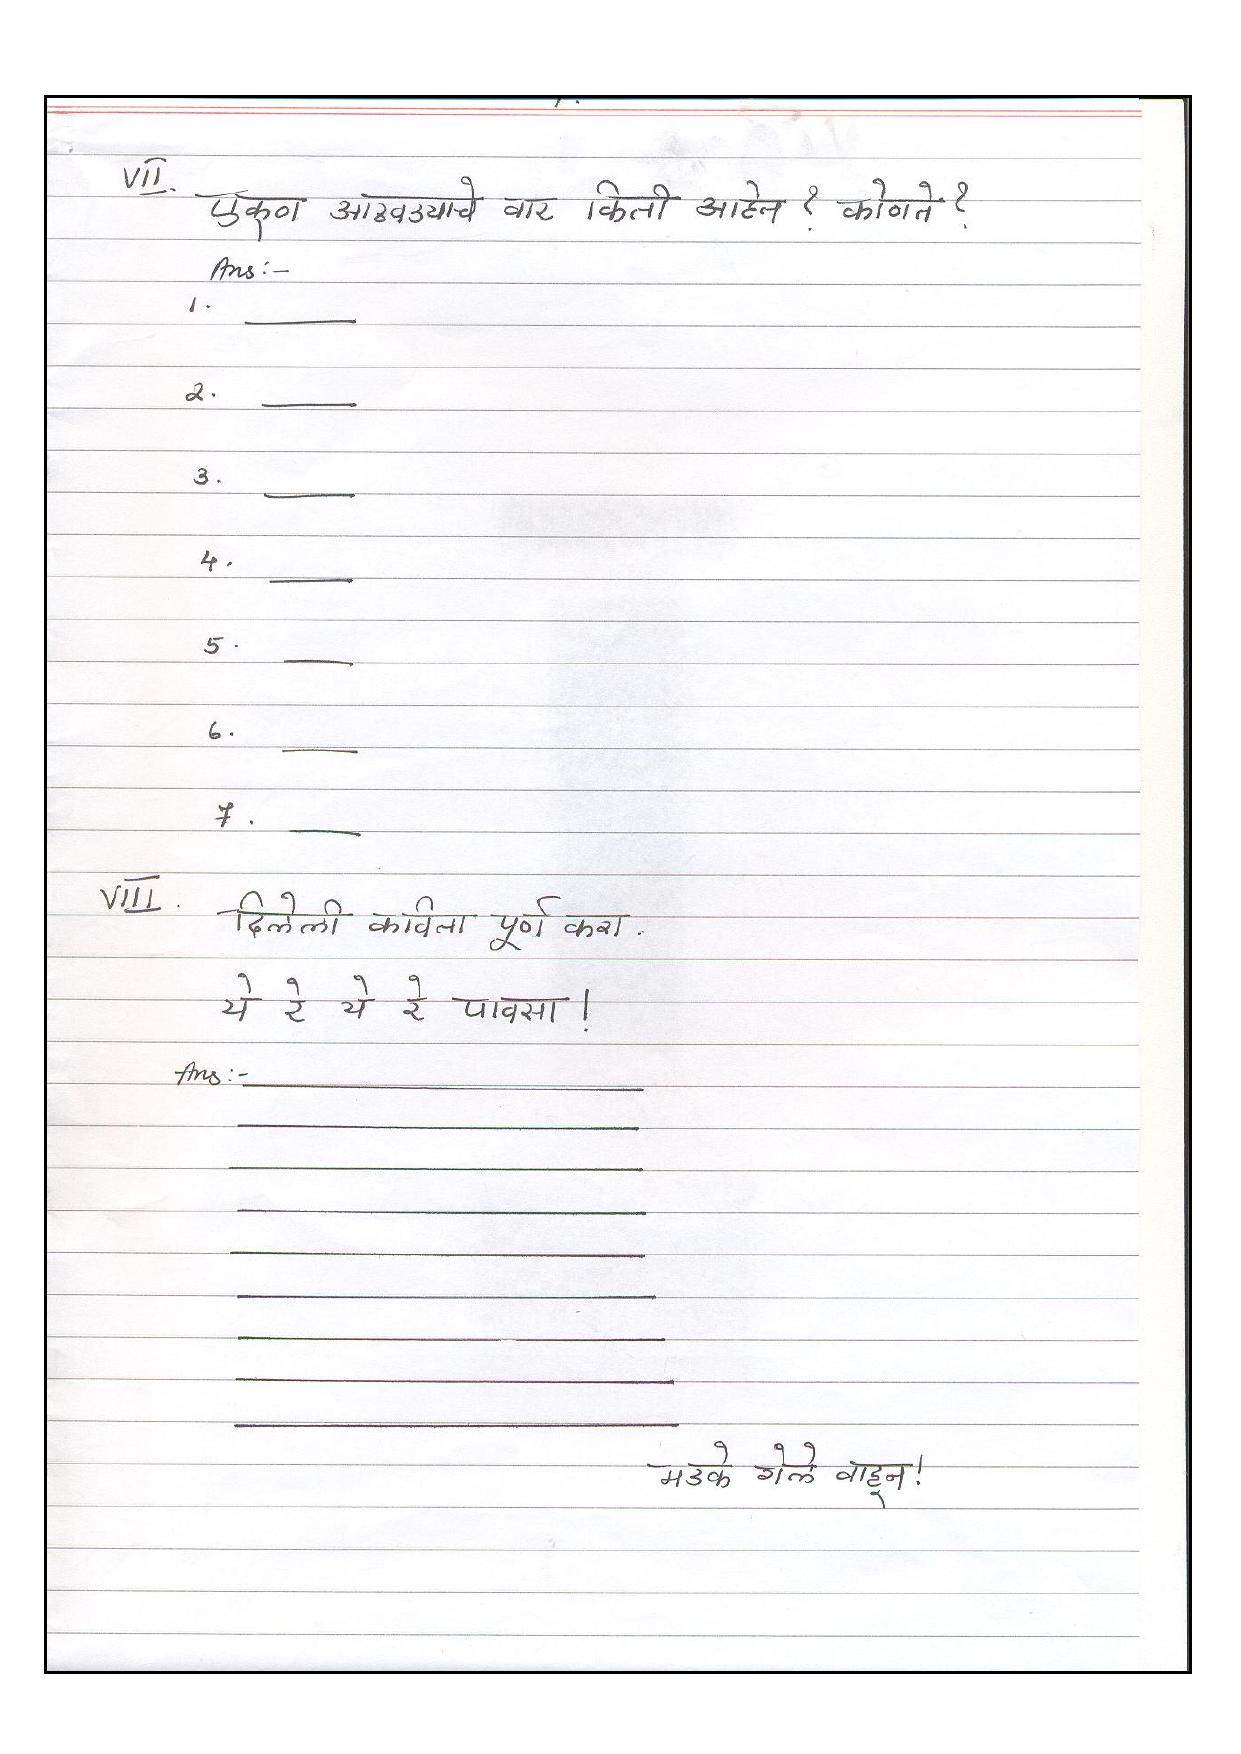 VII. एकूण आठवड्याचे वार किती आहेत? कोणते?
Ans:-
1. ______
2. ______
3. ______
4. ______
5. ______
6. ______
7. ______
VIII. दिलेली कविता पूर्ण करा.
ये रे ये रे पावसा!
Ans:- ______
मडके गेले वाहून!